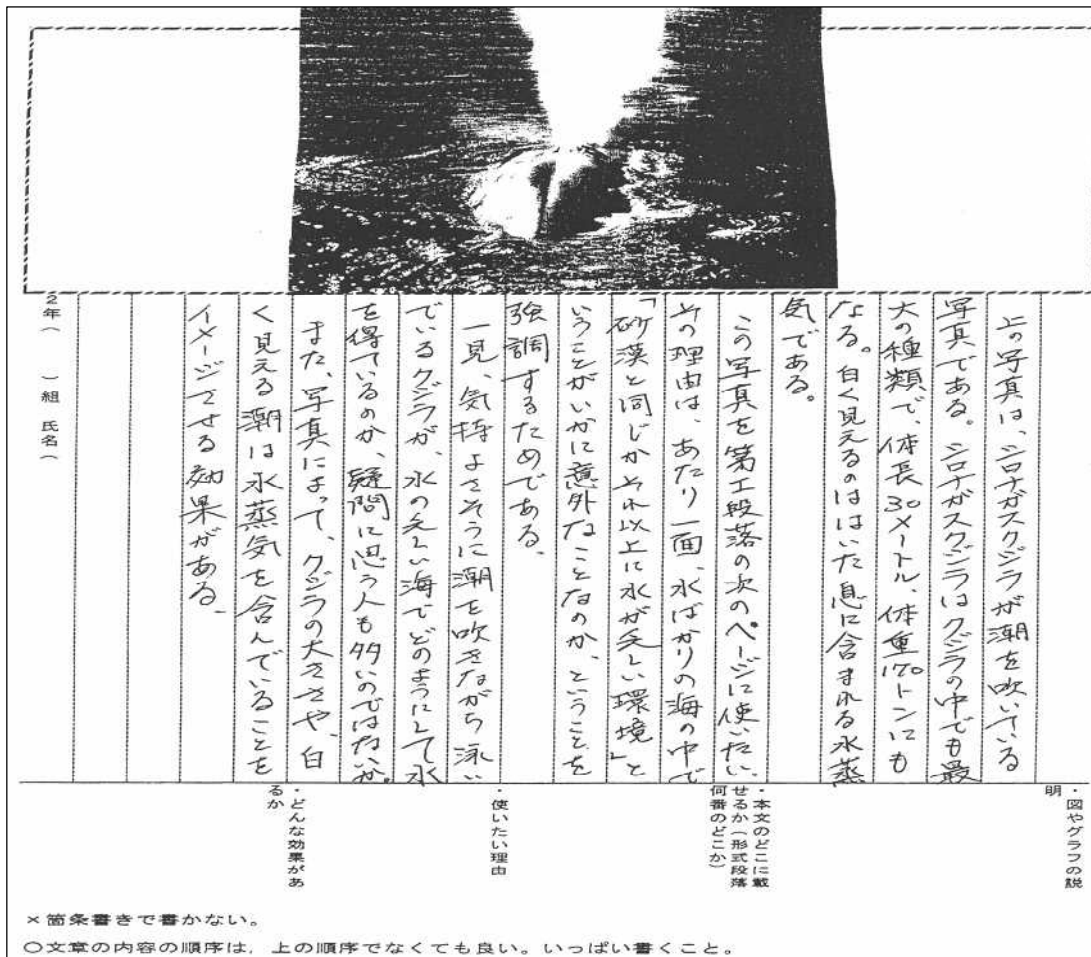 上の写真は、シロナガスクジラが潮を吹いている
写真である。シロナガスクジラはクジラの中でも最
大の種類で、体長30メートル、体重170トンにも
なる。白く見えるのははいた息に含まれる水蒸
気である。
この写真を第工段落の次のページに使いたい。
その理由は、あたり一面、水ばかりの海の中で
「砂漠と同じかそれ以上に水が乏しい環境」と
いうことがいかに意外なことなのか、ということを
強調するためである、
一見、気持よさそうに潮を吹きながら泳い
でいるクジラが、水の乏しい海でどのようにして水
を得ているのか、疑問に思う人も多いのではないか。
また、写真によって、クジラの大きさや、白
く見える潮は水蒸気を含んでいることを
イメージさせる効果がある、
2年（　）組　氏名（
・図やグラフの説
明
・本文のどこに載
せるか（形式段落
何番のどこか）
・使いたい理由
・どんな効果があ
るか
×箇条書きで書かない。
○文章の内容の順序は、上の順序でなくても良い。いっぱい書くこと。